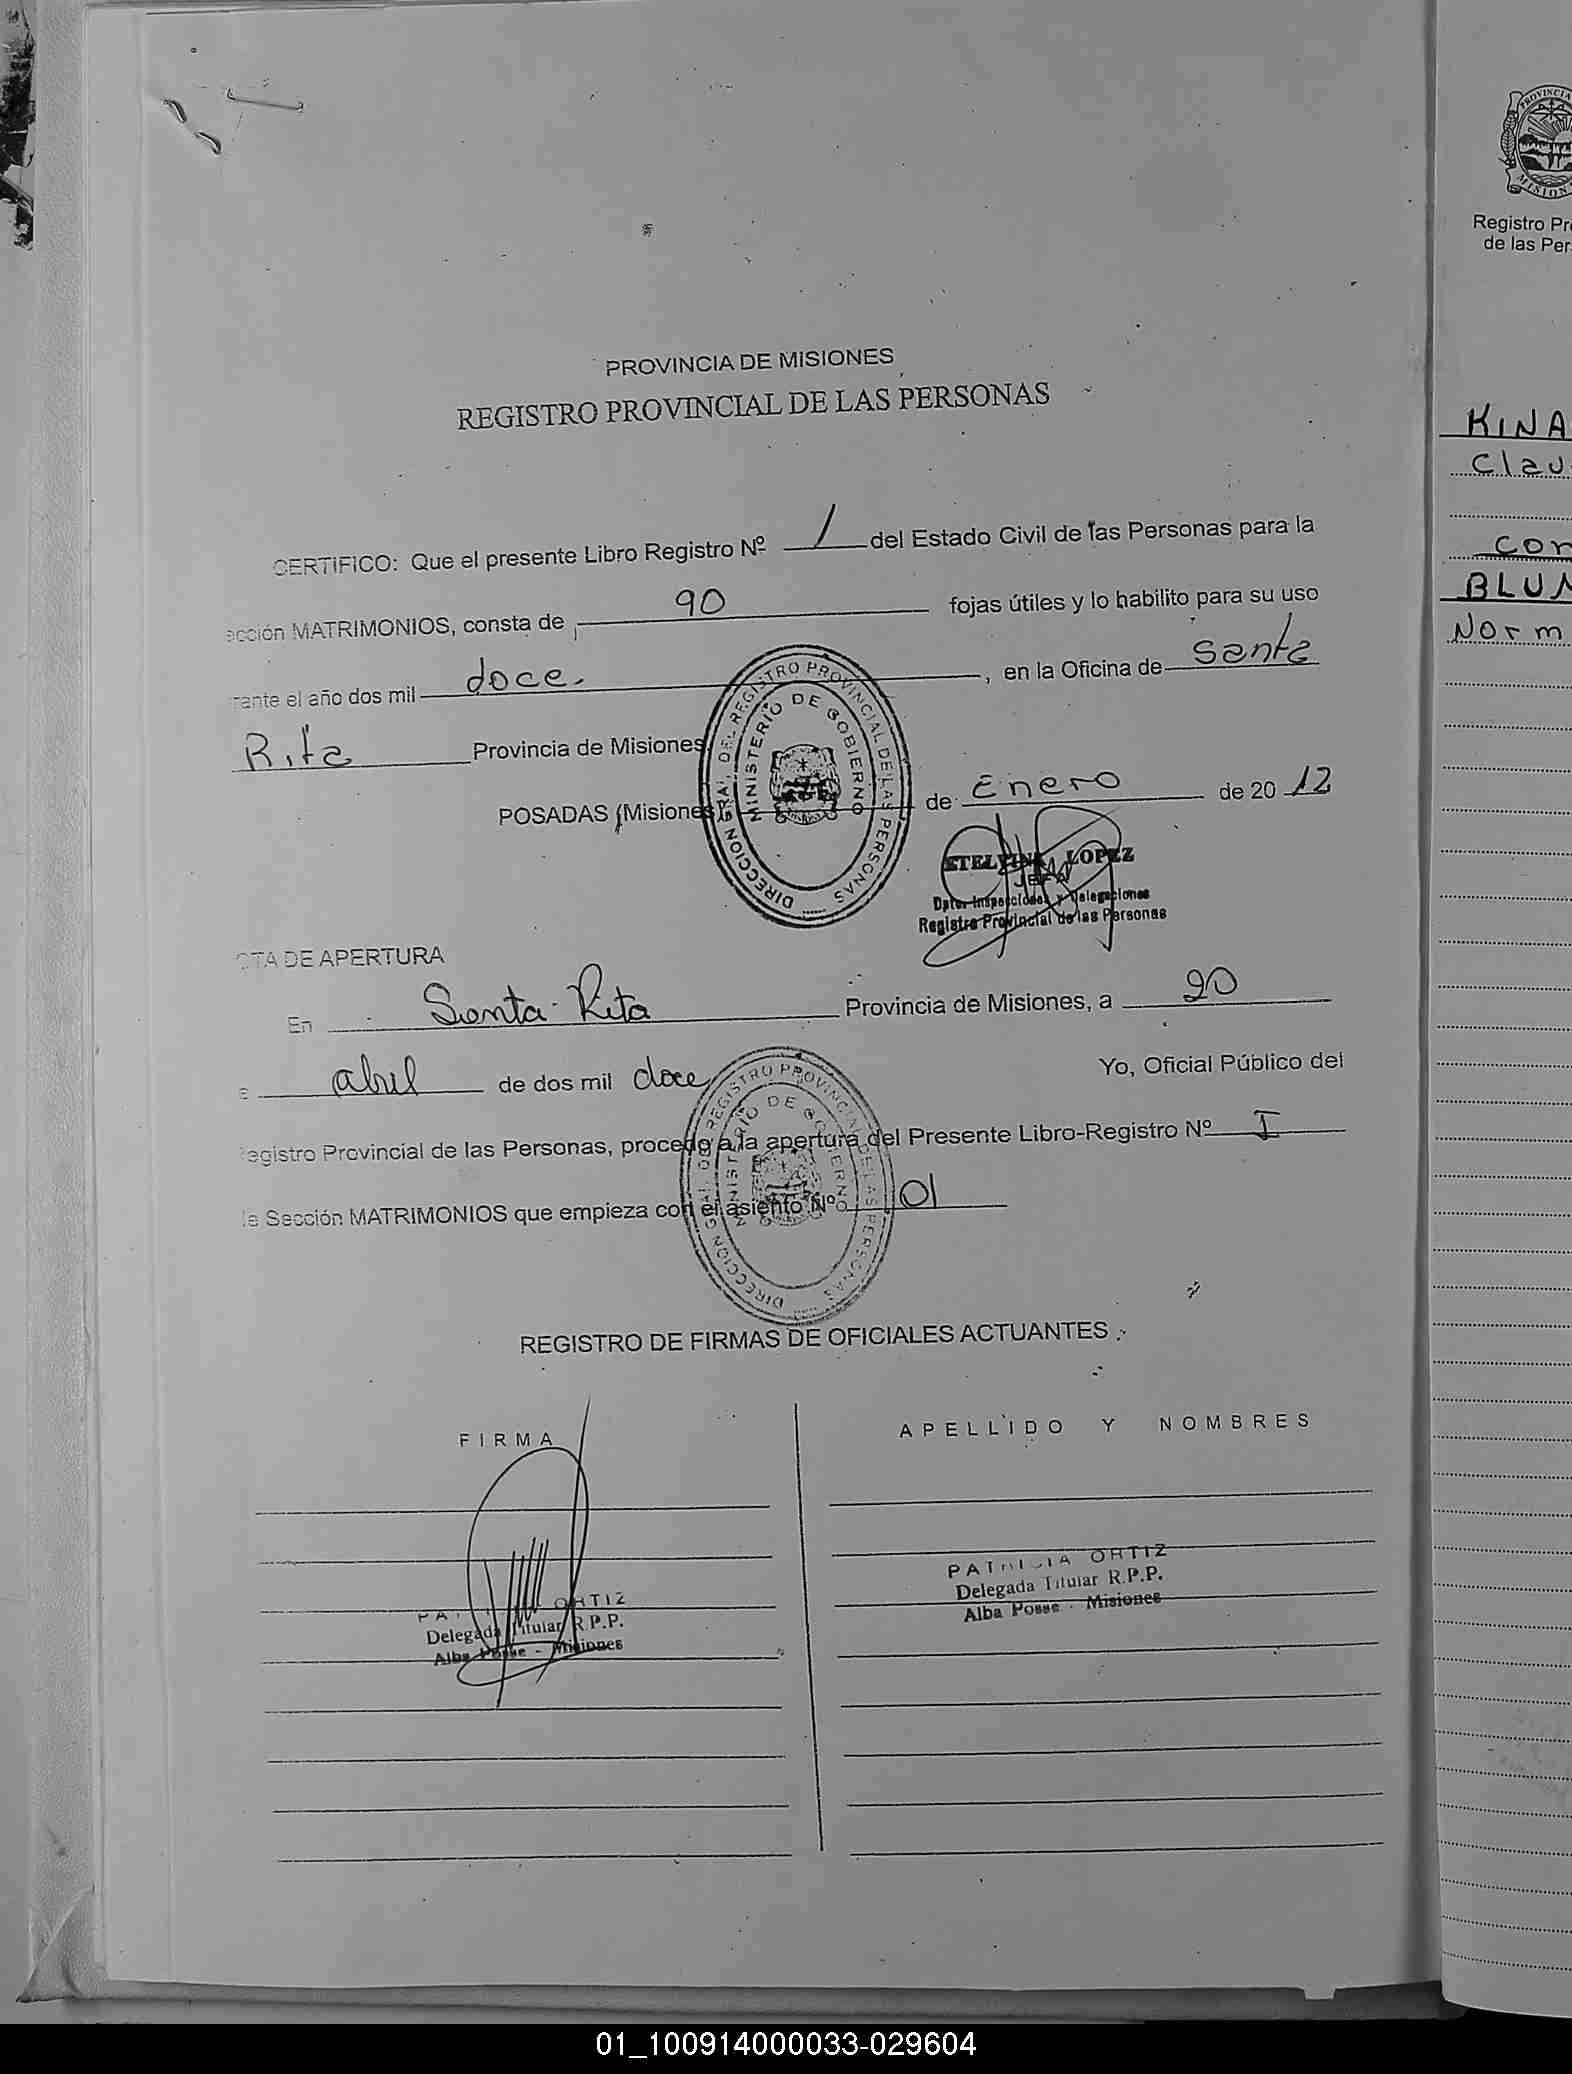 PROVINCIA DE MISIONES
REGISTRO PROVINCIAL DE LAS PERSONAS
CERTIFICO: Que el presente Libro Registro Nº 1 del Estado Civil de las Personas para la
ección MATRIMONIOS, consta de 90 fojas útiles y lo habilito para su uso
rante el año dos mil doce, en la Oficina de Santa
Rita Provincia de Misiones
POSADAS (Misiones) de Enero de 20 12
DIRECCION GRAL. DEL REGISTRO PROVINCIAL DE LAS PERSONAS
MINISTERIO DE GOBIERNO
LOPEZ
JEFA
Dpto. Inspecciones y Delegaciones
Registro Provincial de las Personas
CTA DE APERTURA
En Santa Rita Provincia de Misiones, a 20
e abril de dos mil doce Yo, Oficial Público del
egistro Provincial de las Personas, procedo a la apertura del Presente Libro-Registro Nº I
le Sección MATRIMONIOS que empieza con el asiento Nº 01
DIRECCION GRAL. DEL REGISTRO PROVINCIAL DE LAS PERSONAS
MINISTERIO DE GOBIERNO
REGISTRO DE FIRMAS DE OFICIALES ACTUANTES
FIRMA
APELLIDO Y NOMBRES
ORTIZ
Delegada Titular R.P.P.
Alba Posse - Misiones
PATRICIA ORTIZ
Delegada Titular R.P.P.
Alba Posse - Misiones
PROVINCIA
MISION
Registro Pr
de las Per
KINA
Clau
con
BLUM
Norm
01_100914000033-029604